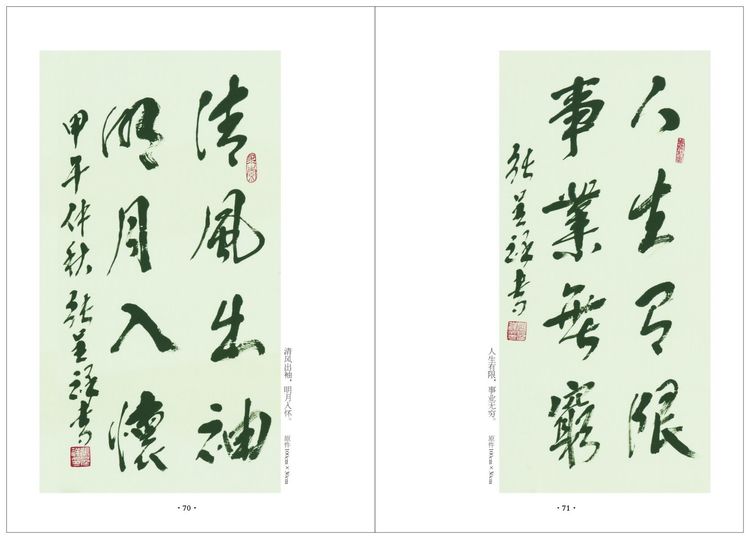 清風出袖
明月入懷
甲午仲秋 張
清风出袖，明月入怀。 原件100cm×50cm
·70·
人生有限
事業無窮
張
人生有限，事业无穷。 原件100cm×50cm
·71·